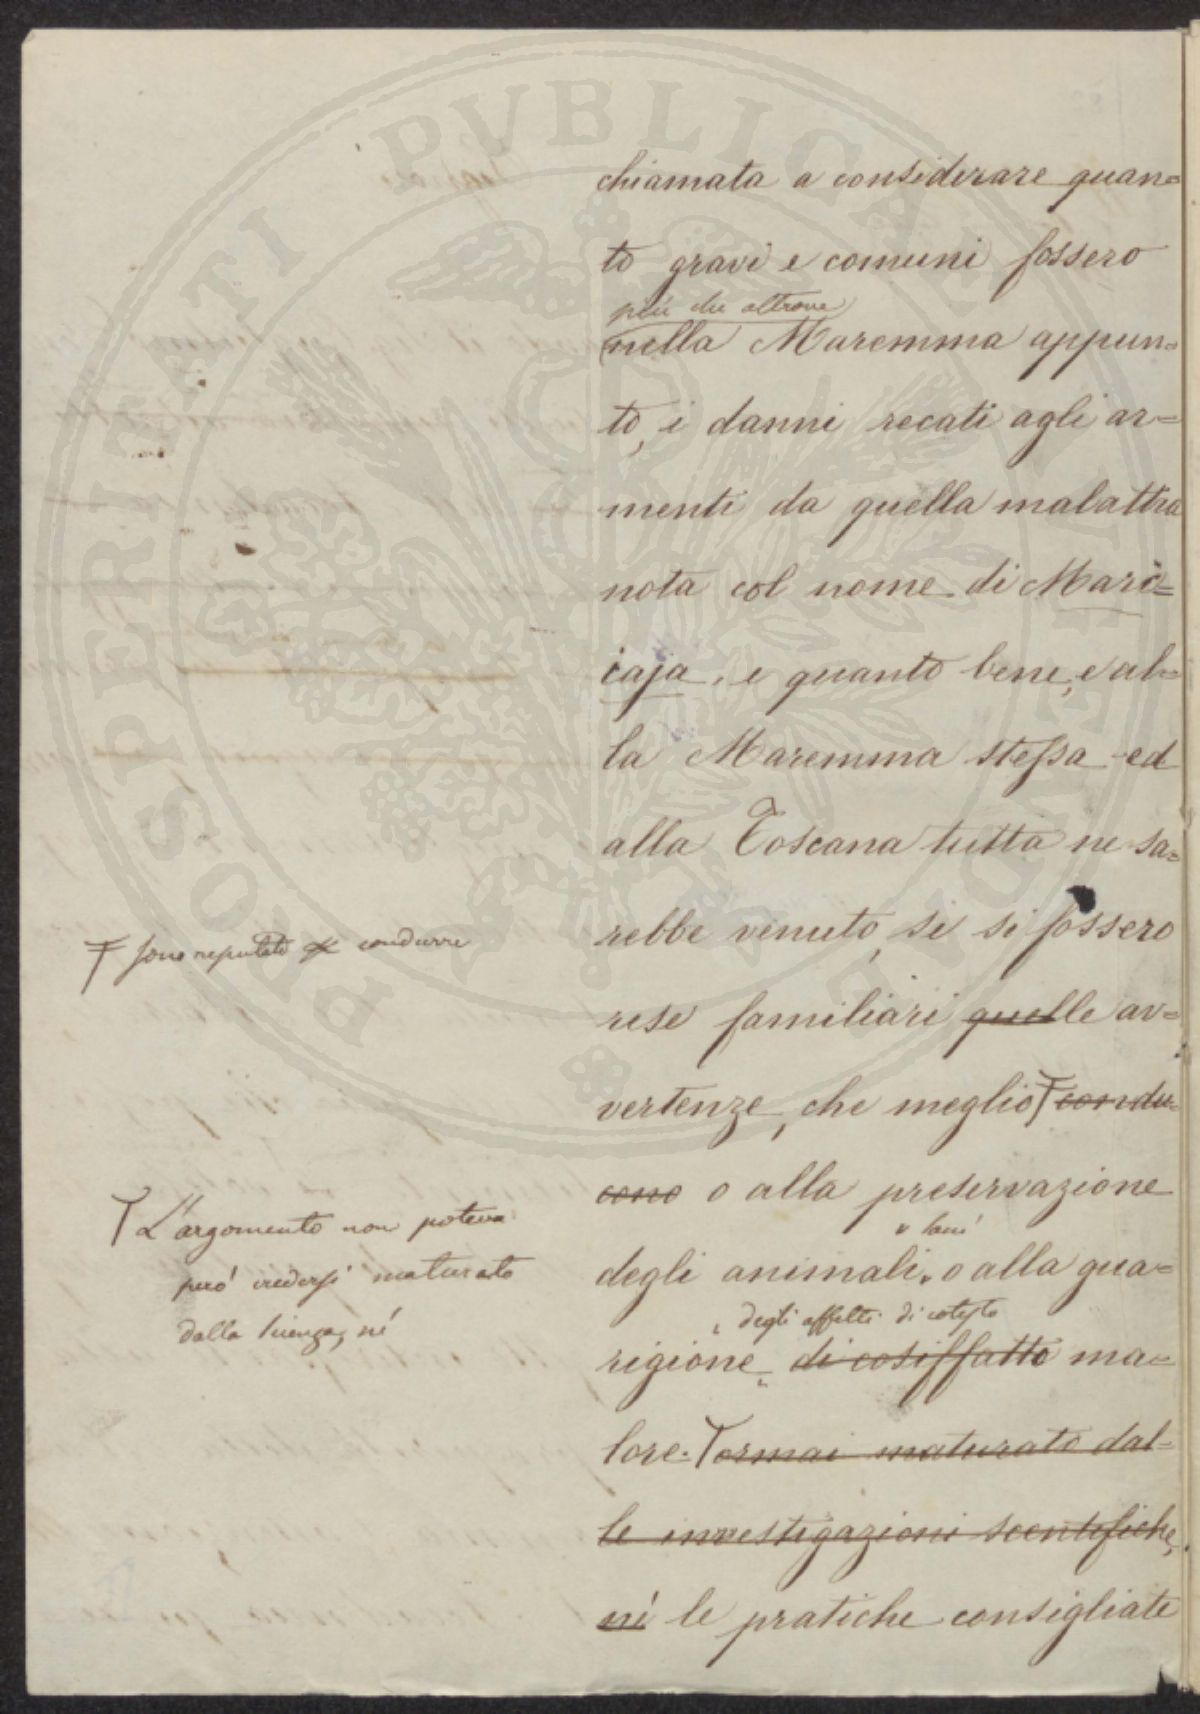 chiamata a considerare quan=
to gravi e comuni fossero
più che altrove
nella Maremma appun=
to, i danni recati agli ar=
menti da quella malattia
nota col nome di Mari=
caja, e quanto bene, e al=
la Maremma stessa ed
alla Toscana tutta ne sa=
rebbe venuto, se si fossero
rese familiari quelle av=
vertenze, che meglio condu=
cono o alla preservazione
degli animali o alla gua=
degli affetti di cotesto
rigione di cosiffatto ma=
lore. ormai maturato dal=
le investigazioni scentifiche,
né le pratiche consigliate
sono reputate condurre
L'argomento non poteva
però credersi maturato
dalla scienza, né
PROSPERITATI PUBLICAE